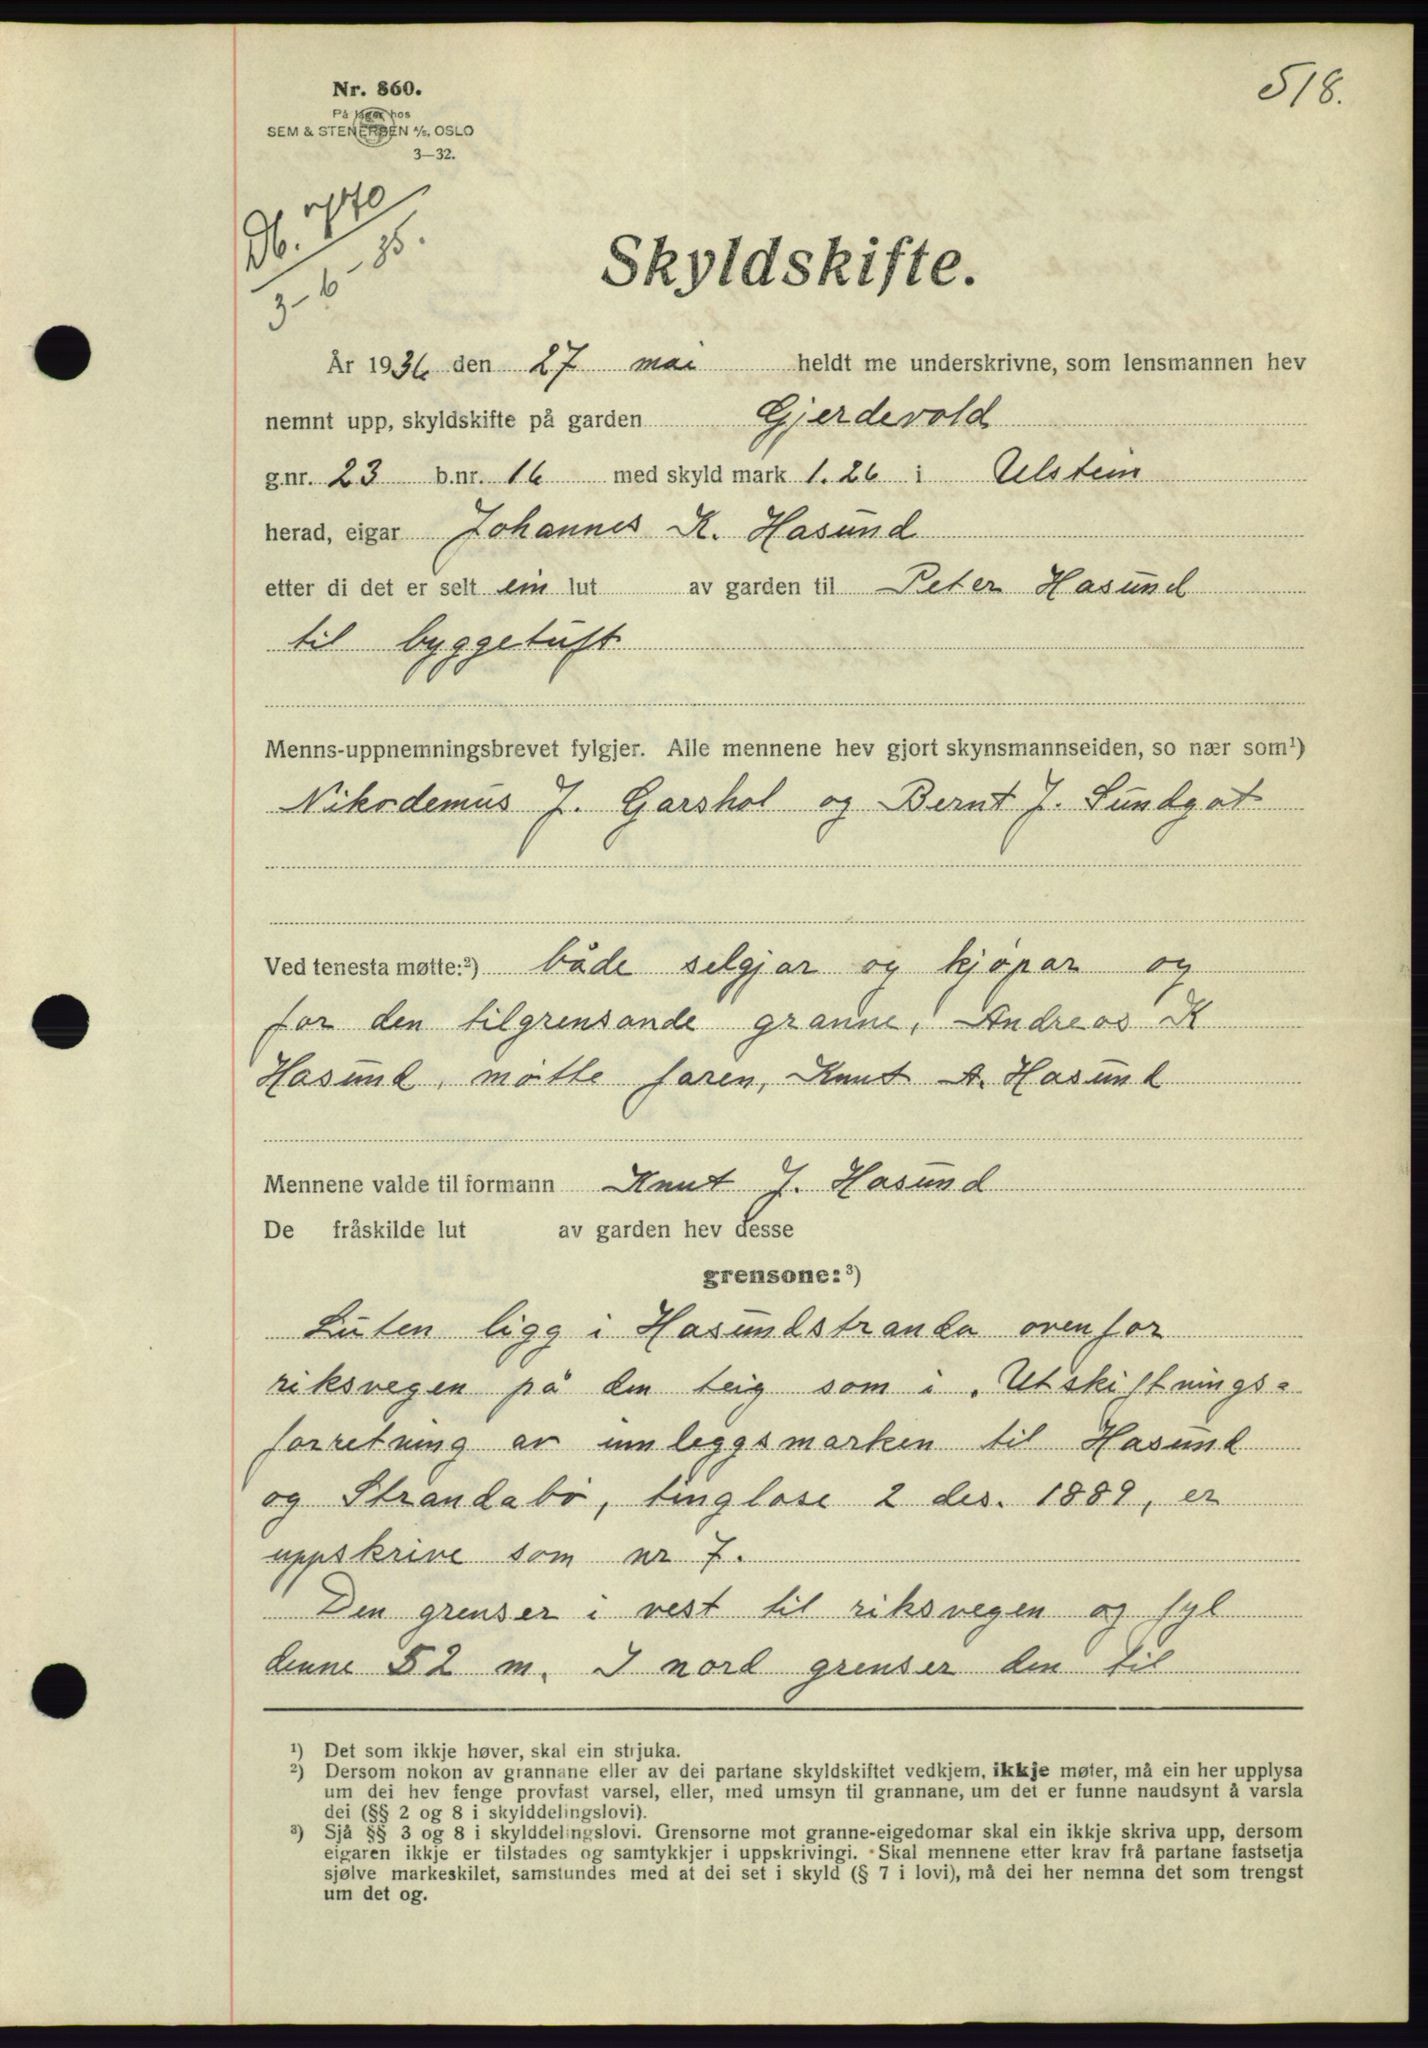 518.
Nr. 860.
På lager hos
SEM & STENERSEN A/S. OSLO
3—32.
Db.
3-6-35.
Skyldskifte.
År 1936 den 27 mai heldt me underskrivne, som lensmannen hev
nemnt upp, skyldskifte på garden Gjerdevold
g.nr. 23 b.nr. 16 med skyld mark 1.26 i Ulstein
herad, eigar Johannes K. Hasund
etter di det er selt ein lut av garden til Peter Hasund
til byggetuft
Menns-uppnemningsbrevet fylgjer. Alle mennene hev gjort skynsmannseiden, so nær som¹)
Nikodemus J. Garshol og Bernt J. Sundgot
Ved tenesta møtte:²) både selgjar og kjøpar og
for den tilgrensande granne, Andreas K
Hasund, møtte faren, Knut A. Hasund
Mennene valde til formann Knut J. Hasund
De fråskilde lut av garden hev desse
grensone:³)
Luten ligg i Hasundstranda ovenfor
riksvegen på den teig som i "Utskiftnings=
forretning av innleggsmarken til Hasund
og Strandabø, tinglose 2 des. 1889, er
uppskrive som nr 7.
Den grenser i vest til riksvegen og fyl
denne 52 m. I nord grenser den til
¹) Det som ikkje høver, skal ein strjuka.
²) Dersom nokon av grannane eller av dei partane skyldskiftet vedkjem, ikkje møter, må ein her upplysa
um dei hev fenge provfast varsel, eller, med umsyn til grannane, um det er funne naudsynt å varsla
dei (§§ 2 og 8 i skylddelingslovi).
³) Sjå §§ 3 og 8 i skylddelingslovi. Grensorne mot granne-eigedomar skal ein ikkje skriva upp, dersom
eigaren ikkje er tilstades og samtykkjer i uppskrivingi. Skal mennene etter krav frå partane fastsetja
sjølve markeskilet, samstundes med at dei set i skyld (§ 7 i lovi), må dei her nemna det som trengst
um det og.